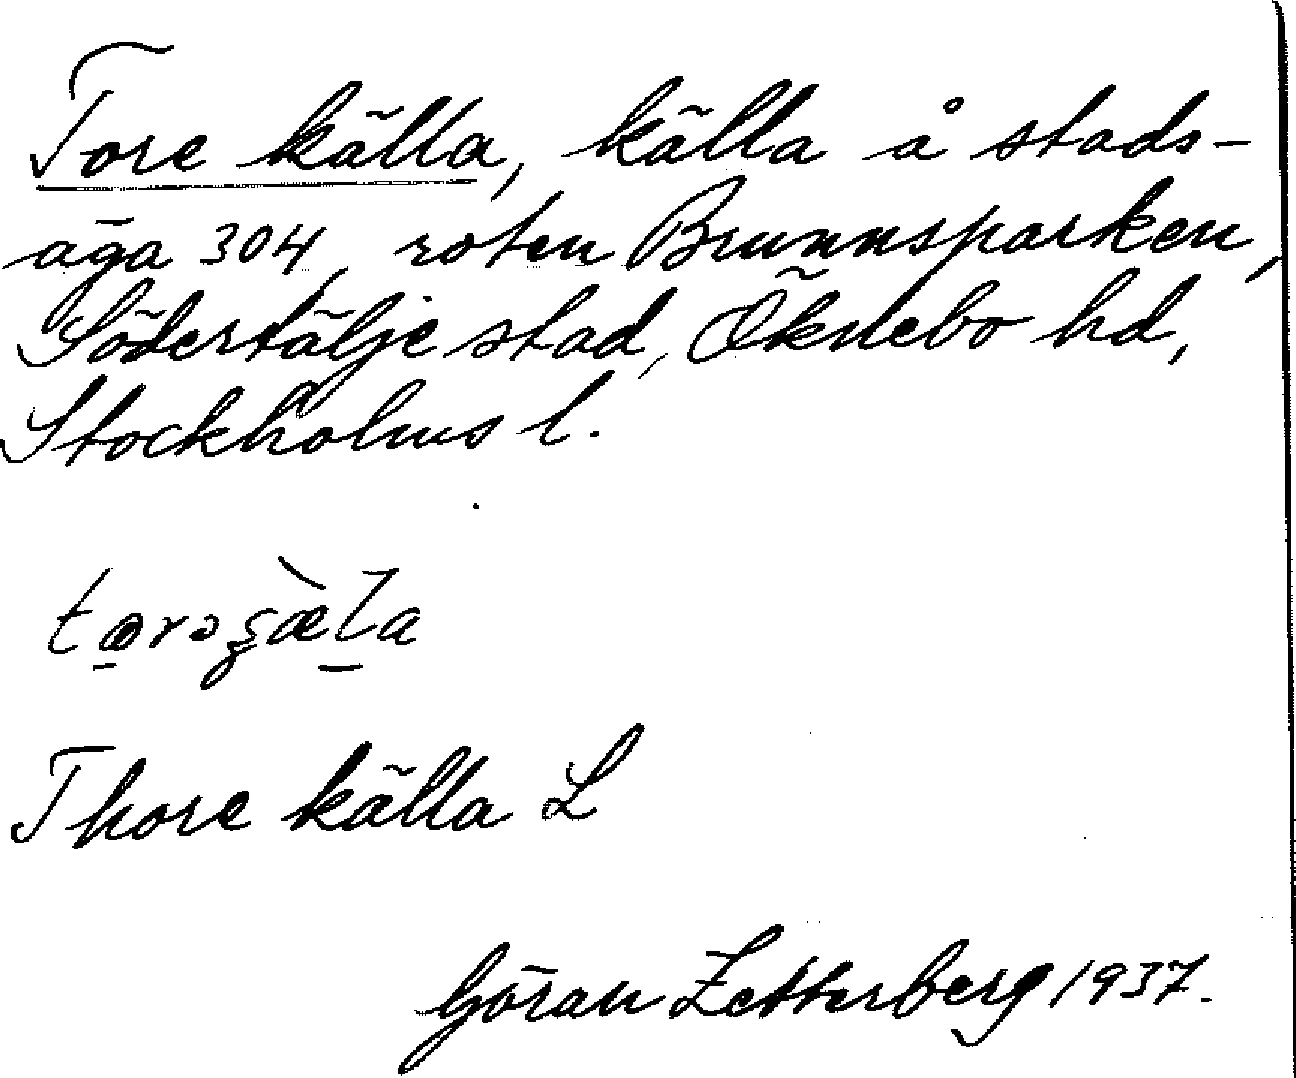 Tore källa, källa å stads-
äga 304, roten Brunnsparken,
Södertälje stad, Öknebo hd,
Stockholms l.
Thore källa L
Göran Zetterberg 1937.